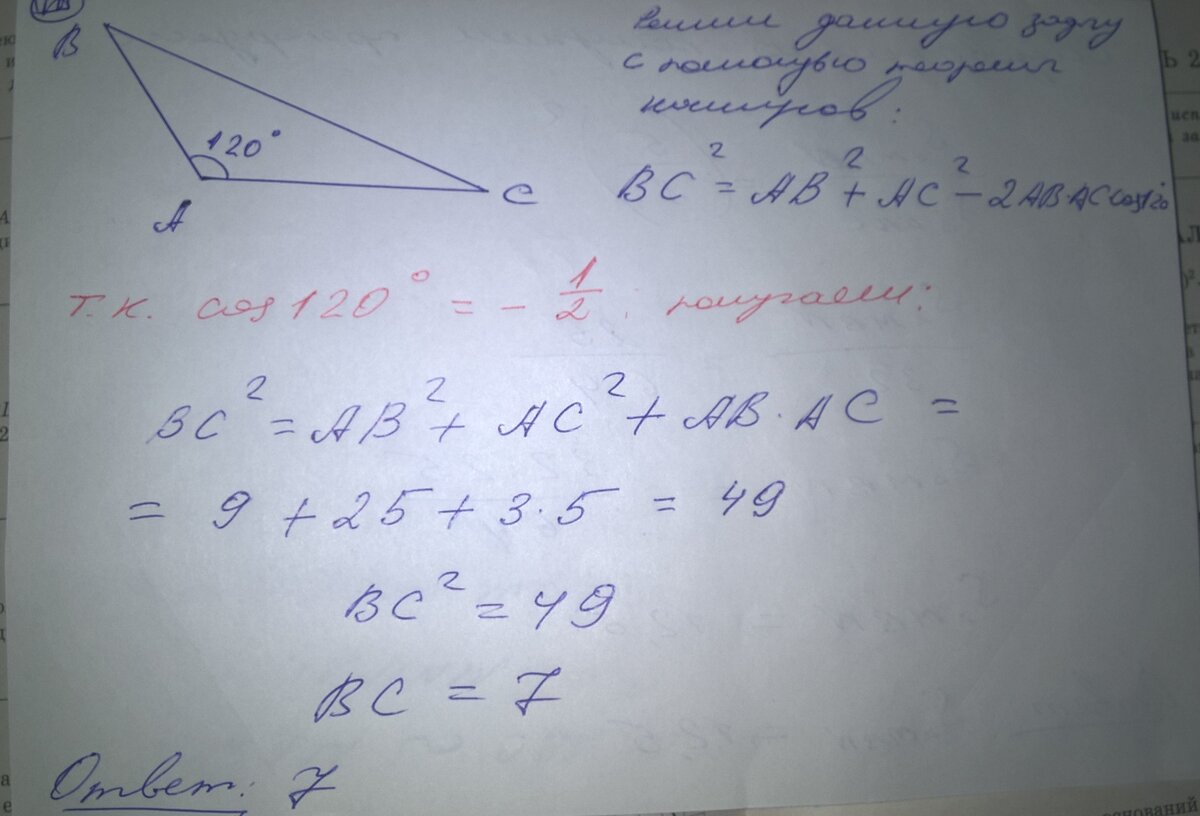 B
120°
A
C
Решим данную задачу
с помощью теоремы
косинусов:
BC² = AB² + AC² - 2AB·AC cos120°
т.к. cos 120° = - 1/2; получаем:
BC² = AB² + AC² + AB · AC =
= 9 + 25 + 3·5 = 49
BC² = 49
BC = 7
Ответ: 7
оснований